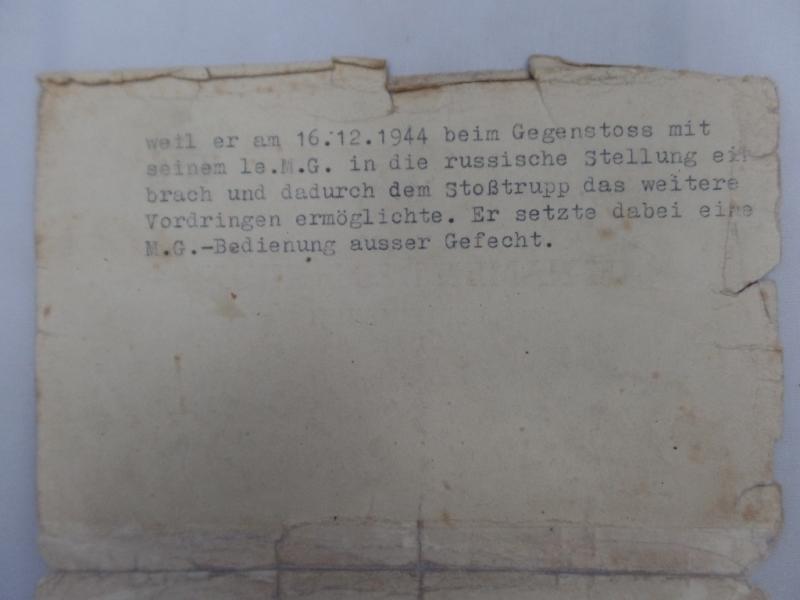 weil er am 16.12.1944 beim Gegenstoss mit
seinem le.M.G. in die russische Stellung ein
brach und dadurch dem Stoßtrupp das weitere
Vordringen ermöglichte. Er setzte dabei eine
M.G.-Bedienung ausser Gefecht.